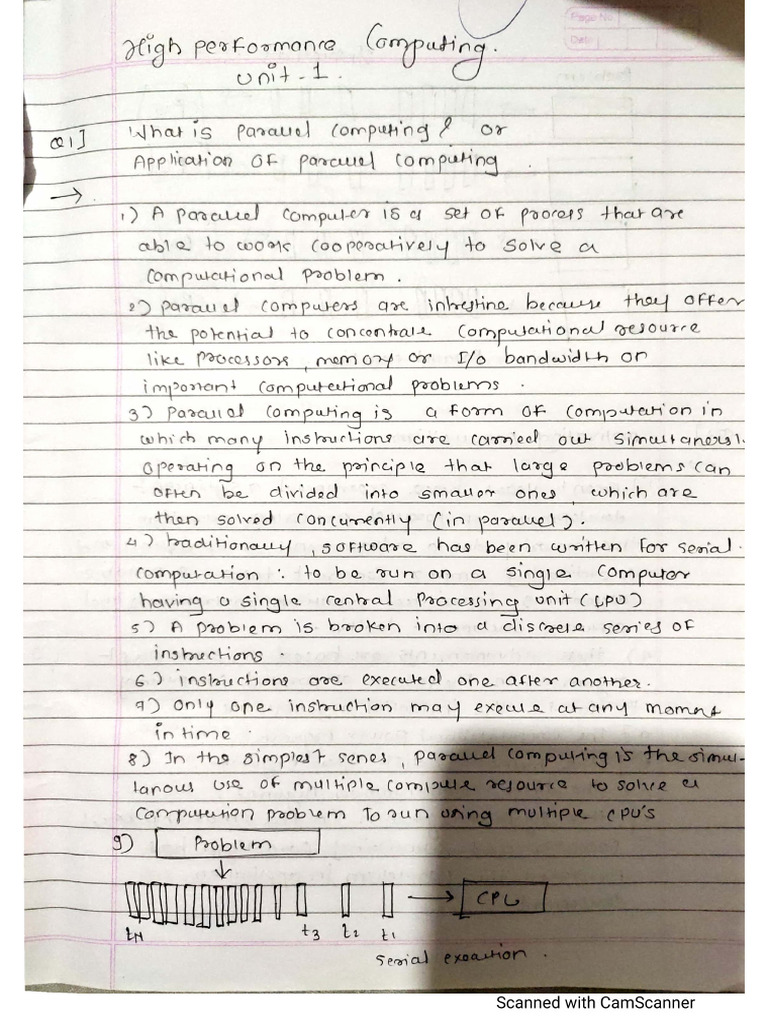 Page No
Date
High performance Computing.
Unit-1.
Q1] What is parallel computing & or
Application OF parallel computing.
→
1) A parallel computer is a set of process that are
able to work cooperatively to solve a
computational problem.
2) parallel computers are intrestine because they offer
the potential to concentrate computational resource
like processors, memory or I/o bandwidth on
important computational problems.
3) parallel computing is a form of computation in
which many instructions are carried out
operating on the principle that large problems can
often be divided into smaller ones, which are
then solved concurrently (in parallel).
4) traditionally, software has been written for serial
computation: to be run on a single computer
having a single central processing unit (CPU)
5) A problem is broken into a discrete series of
instructions.
6) instructions are executed one after another.
7) only one instruction may execute at any moment
in time.
8) In the simplest senes, parallel computing is the simul-
tanous use of multiple compute resource to solve a
computation problem To run using multiple CPU's
9) problem
CPU
tN t3 t2 t1
serial exection.
Scanned with CamScanner